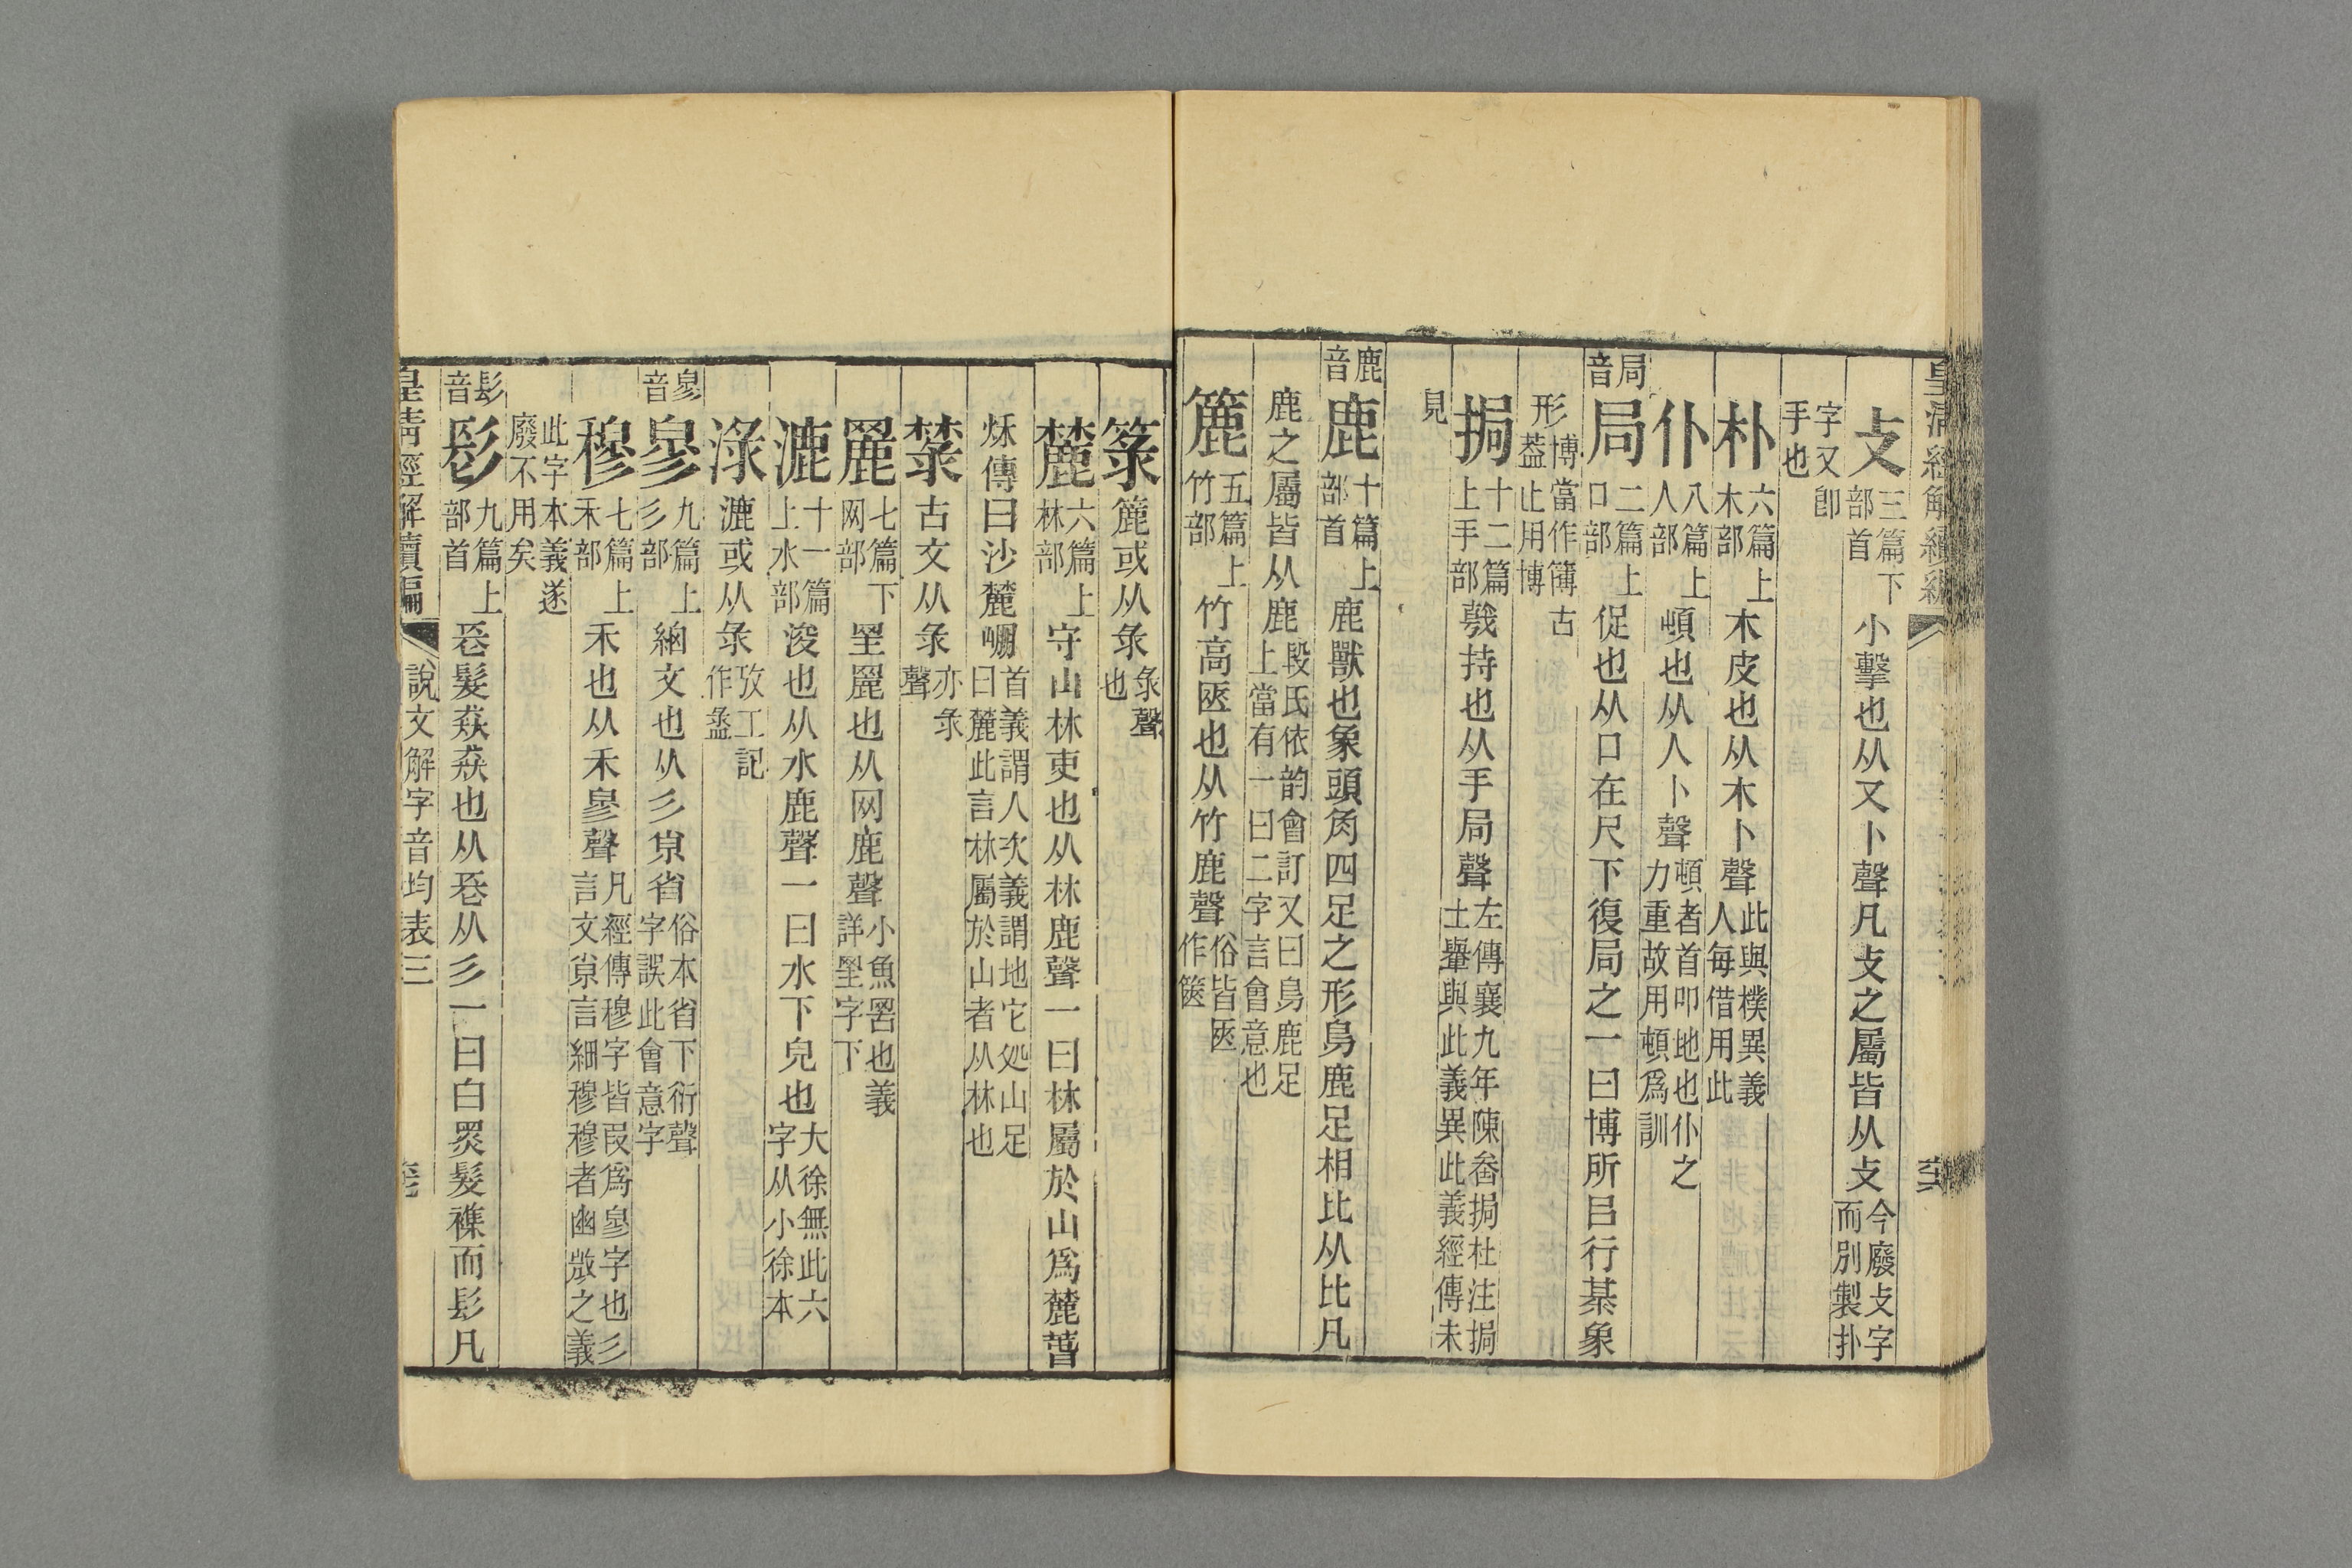 攴三篇下部首小擊也从又卜聲凡攴之屬皆从攴今廢攴字而別製扑
字又卽手也
朴六篇上木部木皮也从木卜聲此與樸異義人每借用此
仆八篇上人部頓也从人卜聲頓者首叩地也仆之力重故用頓爲訓
局音局二篇上口部促也从口在尺下復局之一曰博所㠯行棊象
形博當作簙古葢止用博
挶十二篇上手部㦸持也从手局聲左傳襄九年陳畚挶杜注挶土轝與此義異此義經傳未
見
鹿音鹿十篇上部首鹿獸也象頭角四足之形鳥鹿足相比从比凡
鹿之屬皆从鹿段氏依韵會訂又曰鳥鹿足上當有一曰二字言會意也
簏五篇上竹部竹高匧也从竹鹿聲俗皆匧作篋
箓簏或从录录聲也
麓六篇上林部守山林吏也从林鹿聲一曰林屬於山爲麓萅
秌傳曰沙麓崩首義謂人次義謂地它処山足曰麓此言林屬於山者从林也
菉古文从录亦录聲
䍡七篇下网部罜䍡也从网鹿聲小魚罟也義詳罜字下
漉十一篇上水部浚也从水鹿聲一曰水下皃也大徐無此六字从小徐本
淥漉或从录攷工記作盝
㣎音㣎九篇上彡部細文也从彡𡭴省俗本省下衍聲字誤此會意字
穆七篇上禾部禾也从禾㣎聲凡經傳穆字皆叚爲㣎字也彡言文𡭴言細穆穆者幽㣲之義
此字本義遂廢不用矣
髟音髟九篇上部首長髮猋猋也从長从彡一曰白黑髮襍而髟凡
皇清經解續編 說文解字音均表三